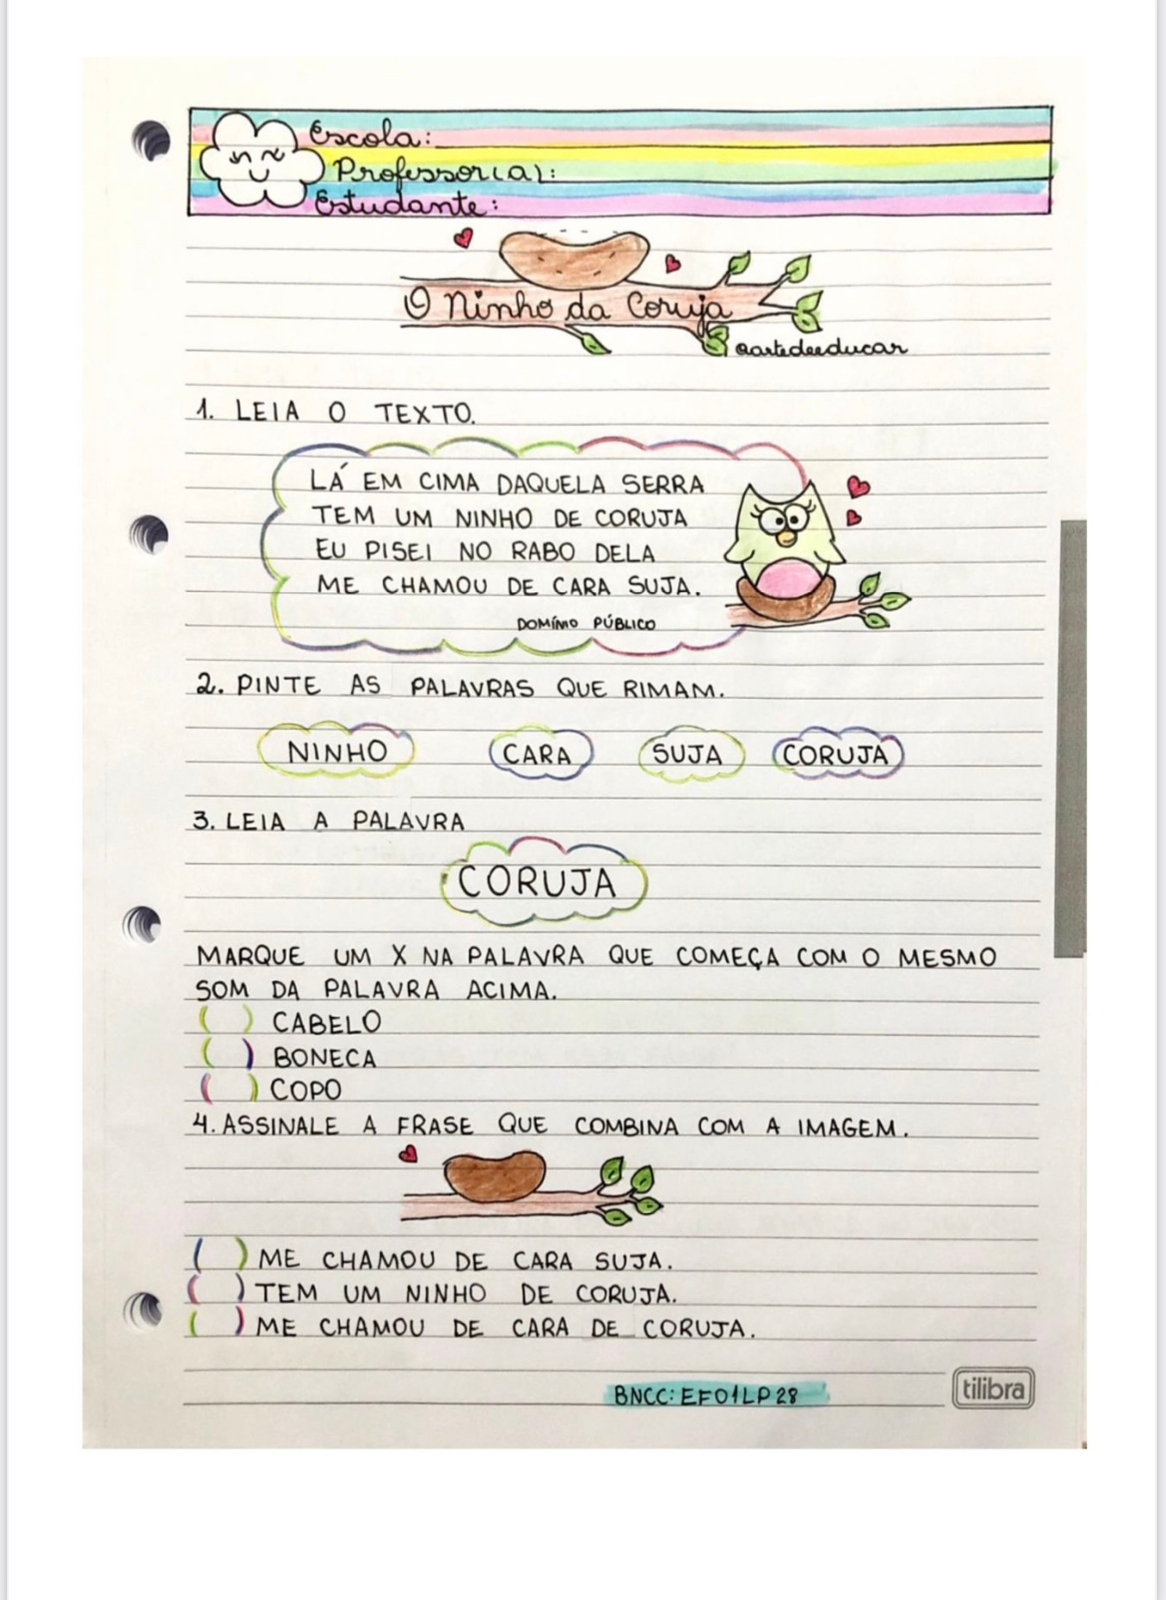 Escola:
Professor(a):
Estudante:
O Ninho da Coruja
@artedeeducar
1. LEIA O TEXTO.
LÁ EM CIMA DAQUELA SERRA
TEM UM NINHO DE CORUJA
EU PISEI NO RABO DELA
ME CHAMOU DE CARA SUJA.
DOMÍNIO PÚBLICO
2. PINTE AS PALAVRAS QUE RIMAM.
NINHO CARA SUJA CORUJA
3. LEIA A PALAVRA
CORUJA
MARQUE UM X NA PALAVRA QUE COMEÇA COM O MESMO
SOM DA PALAVRA ACIMA.
( ) CABELO
( ) BONECA
( ) COPO
4. ASSINALE A FRASE QUE COMBINA COM A IMAGEM.
( ) ME CHAMOU DE CARA SUJA.
( ) TEM UM NINHO DE CORUJA.
( ) ME CHAMOU DE CARA DE CORUJA.
BNCC: EF01LP28
tilibra